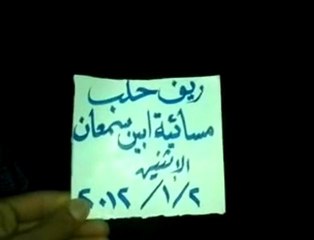 ريف حلب
مسائية ابين سمعان
الاثنين
٢٠١٢/١/٢